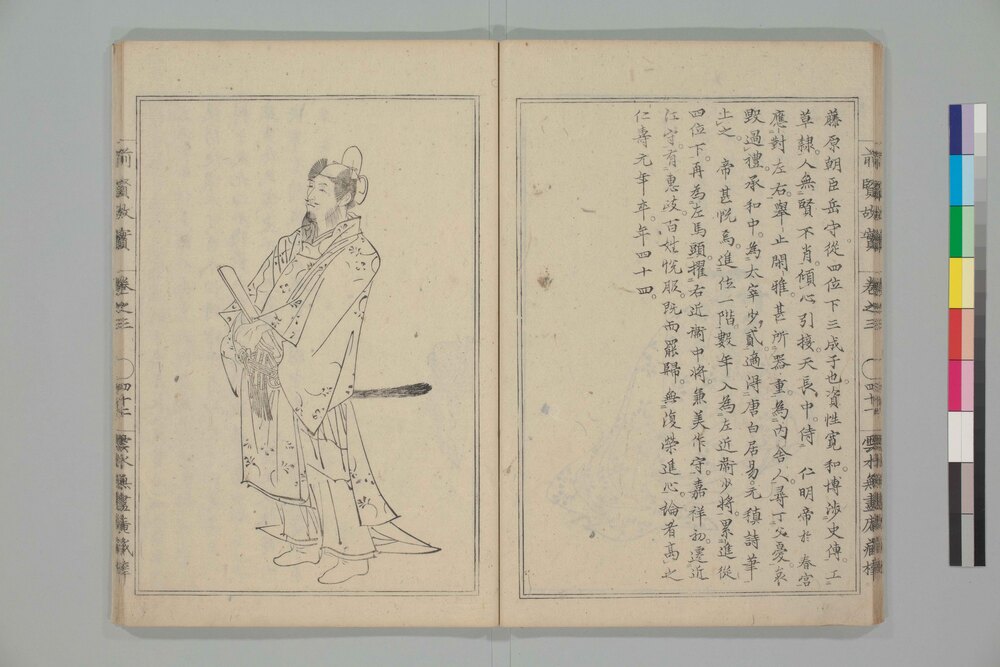 藤原朝臣岳守。從四位下三成子也。資性寬和。博涉史傳。工
草隷。人無賢不肖。傾心引接。天長中。侍　仁明帝於春宮
應對左右。舉止閑雅。甚所器重。為內舍人。尋丁父憂。哀
毀過禮。承和中。為太宰少貳。適得唐白居易。元稹詩筆
上之。　帝甚悅焉。進位一階。數年入為左近衛少將。累進從
四位下。再為左馬頭。擢右近衛中將。兼美作守。嘉祥初。遷近
江守。有惠政。百姓悅服。既而罷歸。無復榮進心。論者高之
仁壽元年卒。年四十四。
前賢故實　卷之三
四十一
前賢故實　卷之三
四十二